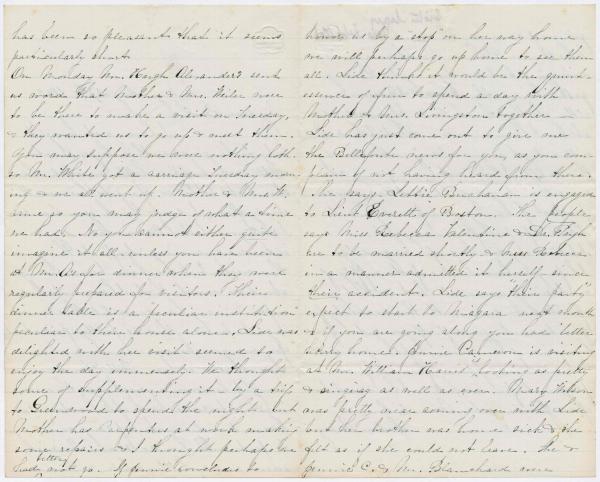 has been so pleasant that it seems
particularly short.
On Monday Mr. Hugh Alexander's sent
us word that Mother & Mrs. Weiler were
to be there to make a visit on Tuesday,
& they wanted us to go up & meet them.
You may suppose we were nothing loth
so Mr. White got a carriage Tuesday morn
ing & we all went up. Mother & Mrs. W.
came so you may judge of what a time
we had. No you cannot either quite
imagine it all unless you have been
at Mr. A's for dinner when they were
regularly prepared for visitors. Their
dinner table is a peculiar institution
peculiar to their house alone. Lide was
delighted with her visit & seemed to
enjoy the day immensely. We thought
some of supplementing it by a trip
to Greenwood to spend the night but
Mother has carpenters at work making
some repairs & I thought perhaps we
better
had not go. If Jennie concludes to
honor us by a "stop" on her way home
we will perhaps go up home to see them
all. Lide thinks it would be the quint-
essence of fun to spend a day with
Mother & Mrs. Livingston together
Lide has just come out to give me
the Bellefonte news for you, as you com-
plain of not having heard from there.
She says Lettie Buchanan is engaged
to Lieut Everett of Boston. The people
says Miss Rebecca Valentine & Mr. Pugh
are to be married shortly & Miss Rebecca
in a manner admitted it herself since
their accident. Lide says "their party"
expect to start to Niagara next month
& if you are going along you had better
hurry home. Annie Cameron is visiting
at Mrs William Harris looking as pretty
& singing as well as ever. Mary Wilson
was pretty near coming over with Lide
but her brother was home sick & she
felt as if she could not leave. She &
Jennie C. & Mr. Blanchard were